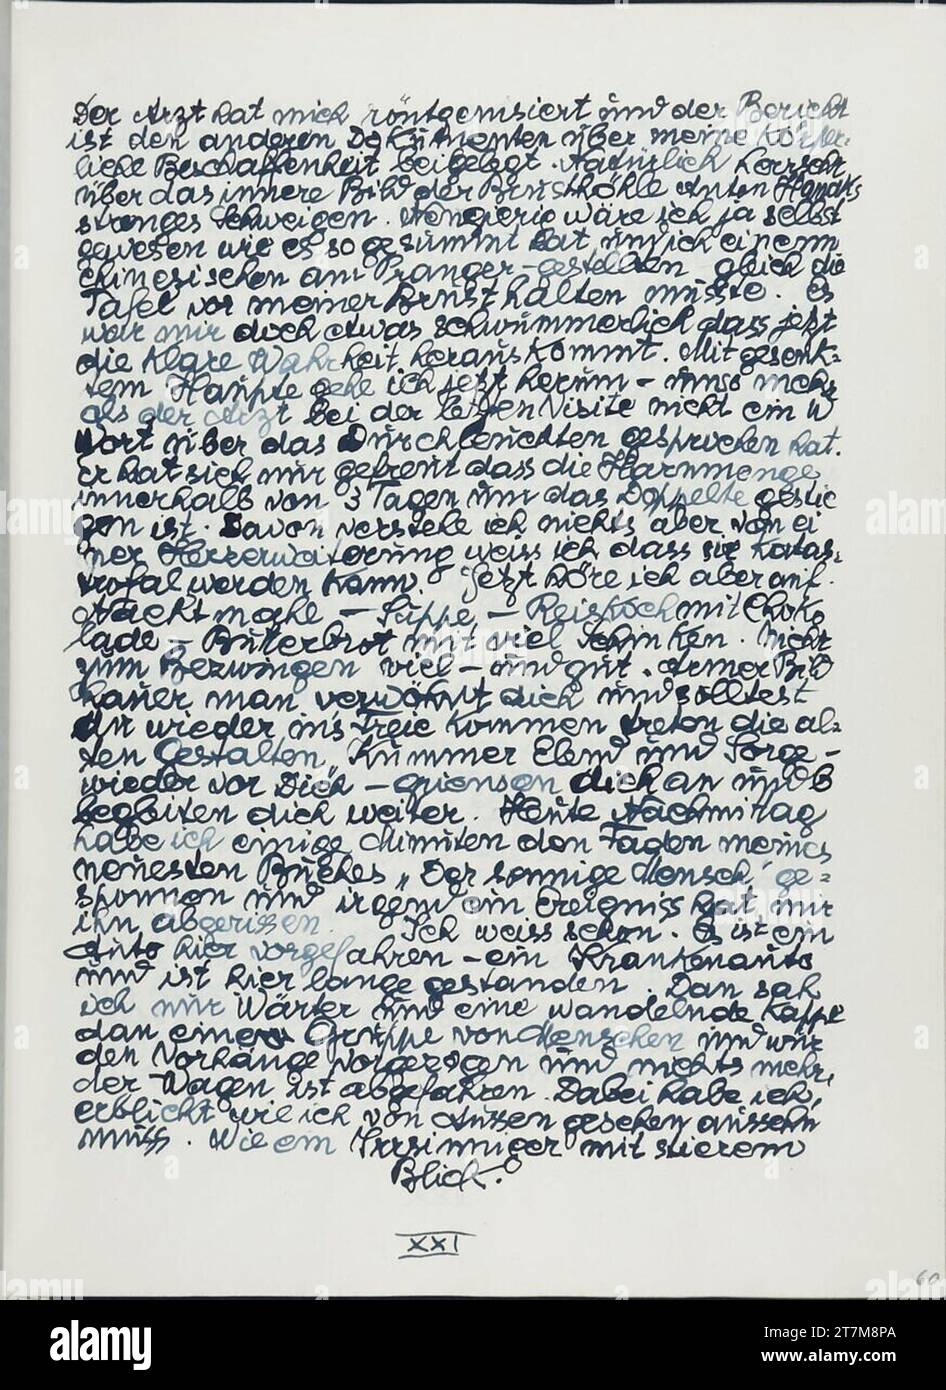 Der Arzt hat mich röntgenisiert und der Bericht
ist den anderen Dokumenten über meine Körper-
liche Beschaffenheit beigelegt. Natürlich herrscht
über das innere Bild der Brusthöhle
strenges Schweigen. Neugierig wäre ich ja selbst
gewesen wie es so gesummt hat und ich einem
Chinesischen am Pranger-gestellten gleich die
Tafel vor meiner Brust halten müsste. Es
war mir doch etwas schwummerlich dass jetzt
die klare Wahrheit herauskommt. Mit gesenk-
tem Haupte gehe ich jetzt herum - umso mehr
als der Arzt bei der letzten Visite nicht ein W
Wort über das Durchleuchten gesprochen hat.
Er hat sich nur gefreut dass die Harnmenge
innerhalb von 3 Tagen um das Doppelte gestie
gen ist. Davon verstehe ich nichts aber von ei
ner weiss ich dass sie Katas-
trofal werden kann. Jetzt höre ich aber auf.
Nachtmahl - Suppe - Reiskoch mit Choko
lade - Butterbrot mit viel Schinken. Nicht
zum Bezwingen viel - und gut. Armer Bild
hauer man verwöhnt dich und solltest
du wieder ins Freie kommen treten die al-
ten Gestalten, Kummer Elend und Sorge -
wieder vor Dich - griensen dich an und B
begleiten dich weiter. Heute Nachmittag
habe ich einige Minuten den Faden meines
neuesten Buches „Der sonnige Mensch" ge-
sponnen und irgend ein Ereigniss hat mir
ihn abgerissen. Ich weiss schon. Es ist ein
Auto hier vorgefahren - ein Krankenauto
und ist hier lange gestanden. Dan sah
ich nur Wärter und eine wandelnde Kappe
dan eine Gruppe von Menschen und wir
den Vorhänge vorgezogen und nichts mehr,
der Wagen ist abgefahren. Dabei habe ich,
erblickt wie ich von Aussen gesehen aussehn
muss. Wie ein Irrsinniger mit stierem
Blick.
XXI
60
alamy
Image ID: 2T7M8PA
www.alamy.com